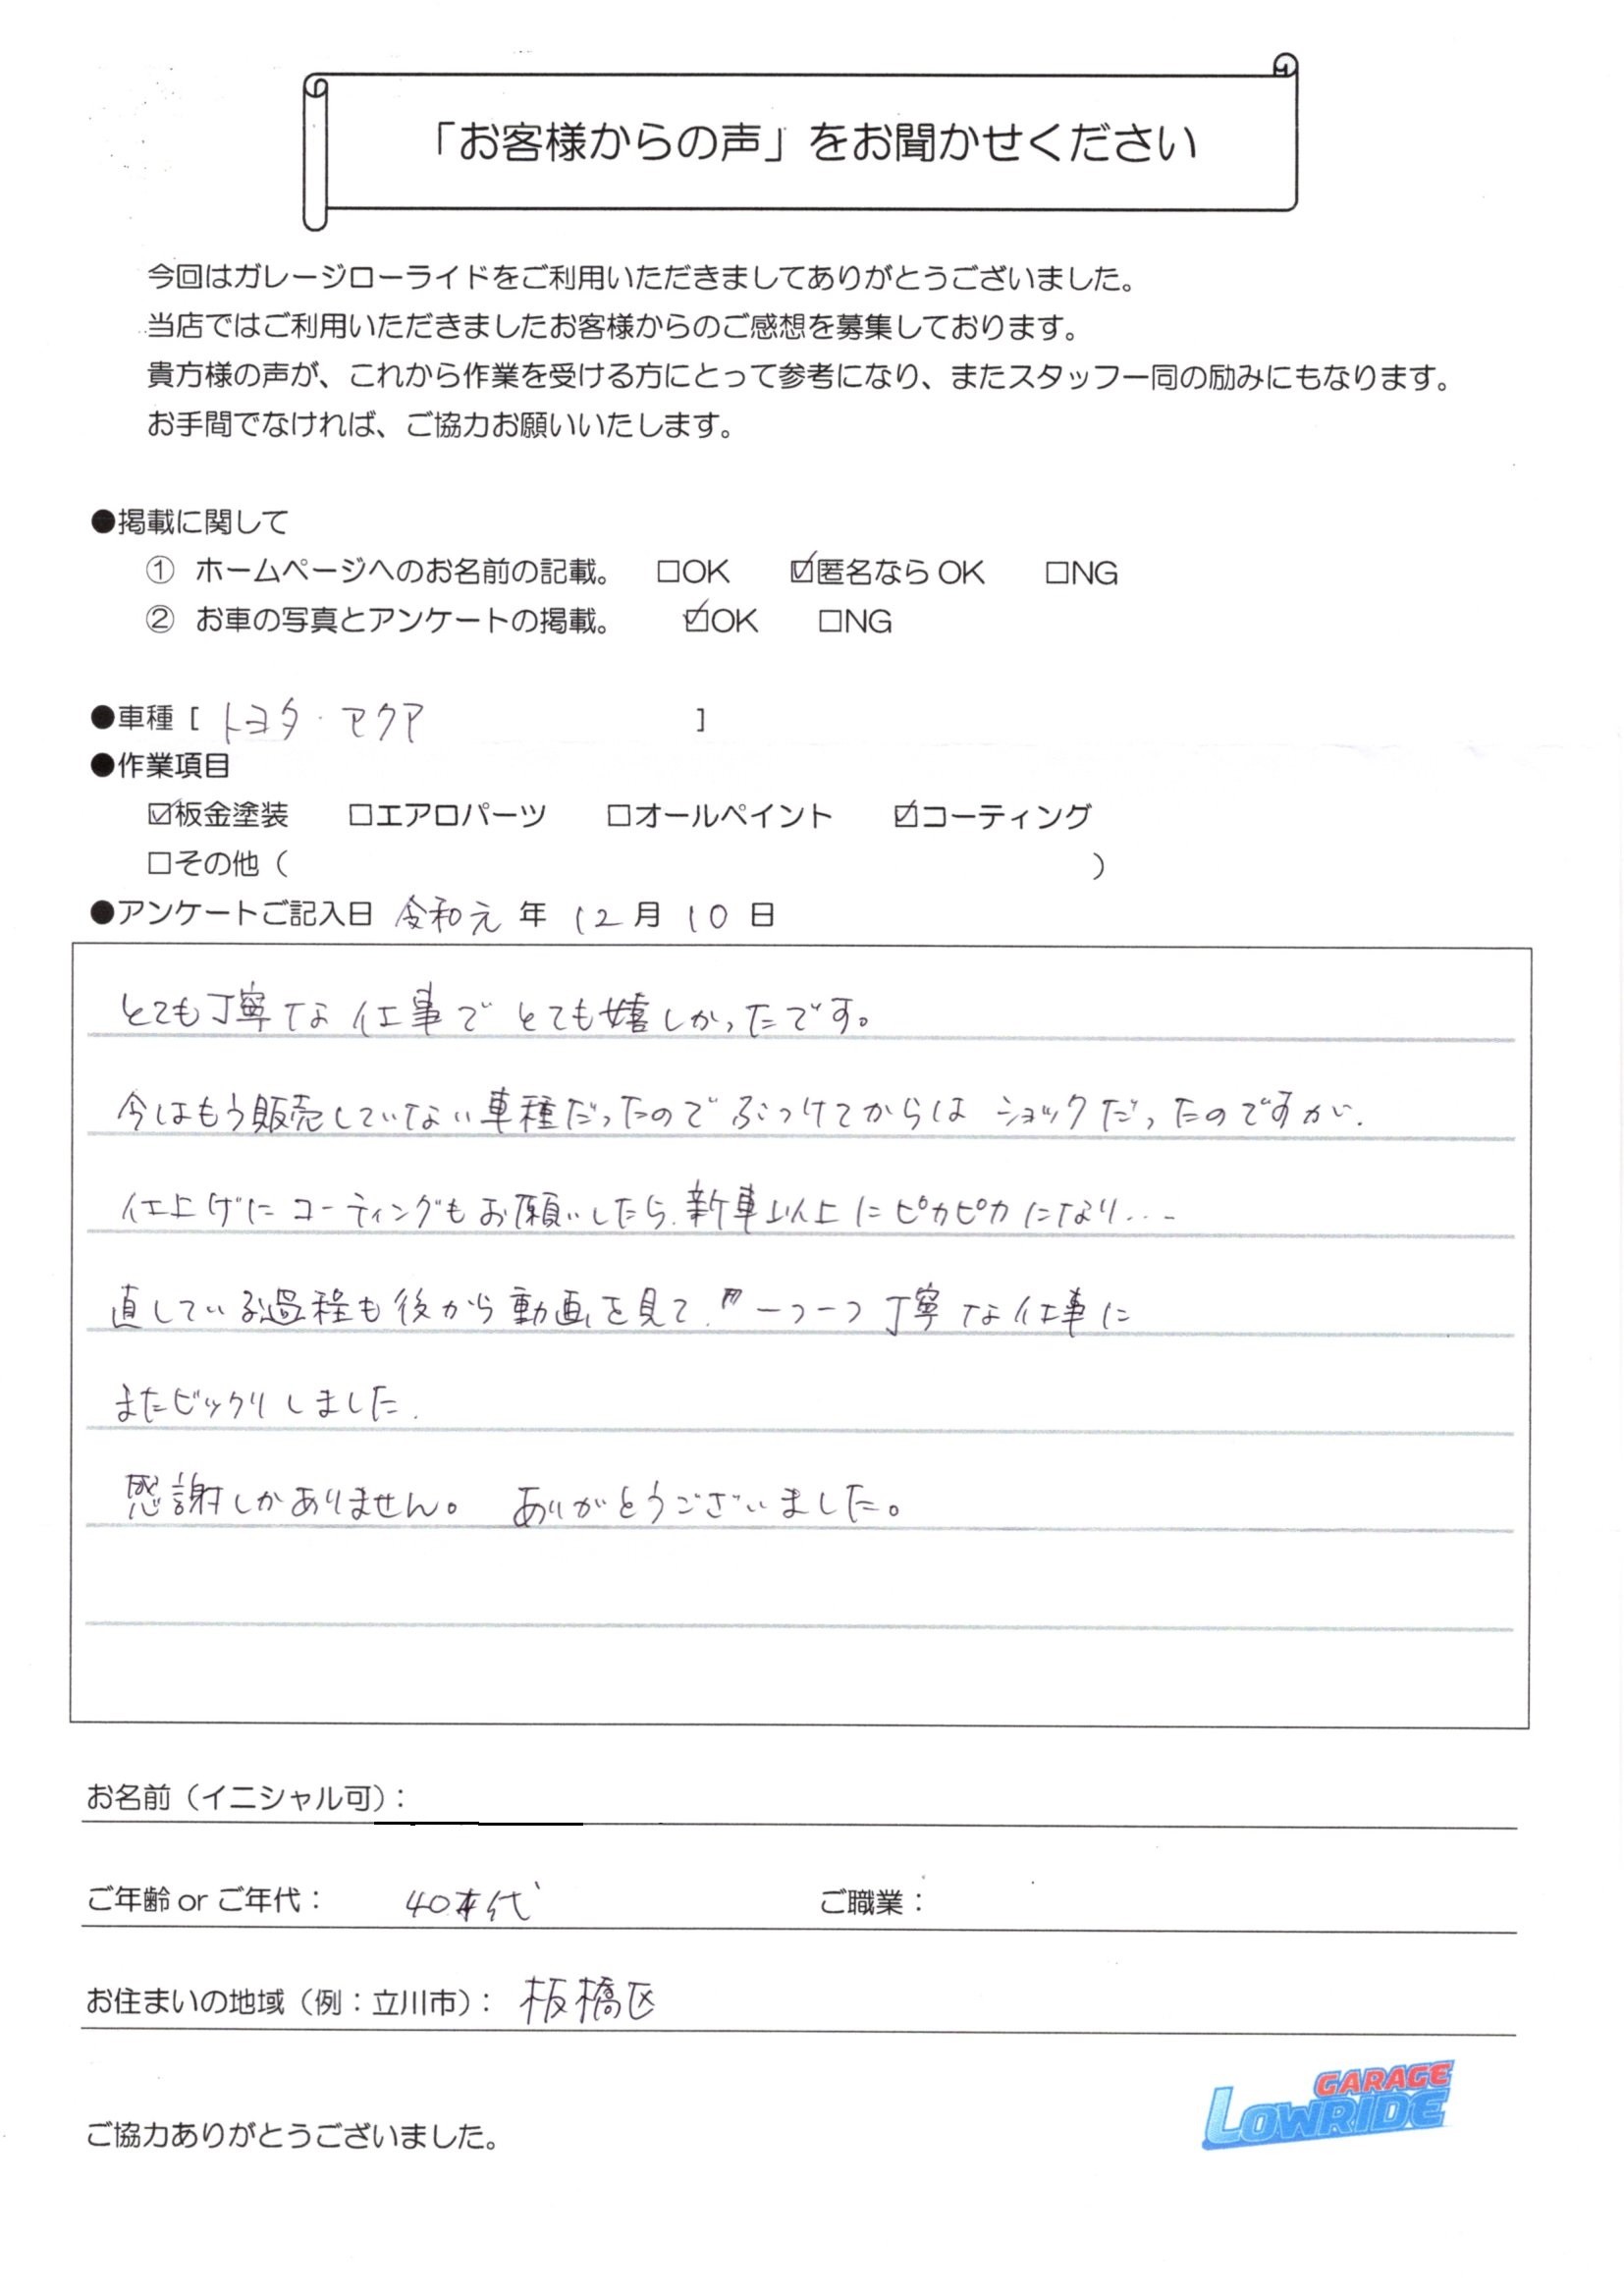 「お客様からの声」をお聞かせください
今回はガレージローライドをご利用いただきましてありがとうございました。
当店ではご利用いただきましたお客様からのご感想を募集しております。
貴方様の声が、これから作業を受ける方にとって参考になり、またスタッフ一同の励みにもなります。
お手間でなければ、ご協力お願いいたします。
●掲載に関して
① ホームページへのお名前の記載。 □OK ☑匿名なら OK □NG
② お車の写真とアンケートの掲載。 ☑OK □NG
●車種 [ トヨタ・アクア ]
●作業項目
☑板金塗装 □エアロパーツ □オールペイント ☑コーティング
□その他（ ）
●アンケートご記入日 令和元 年 12 月 10 日
とても丁寧な仕事で とても嬉しかったです。
今はもう販売していない車種だったので ぶつけてからは ショックだったのですが.
仕上げに コーティングもお願いしたら. 新車以上に ピカピカになり...
直している過程も後から動画を見て. 一つ一つ 丁寧な仕事に
またビックリしました.
感謝しかありません。 ありがとうございました。
お名前（イニシャル可）：
ご年齢 or ご年代： 40才代 ご職業：
お住まいの地域（例：立川市）： 板橋区
GARAGE
LOWRIDE
ご協力ありがとうございました。